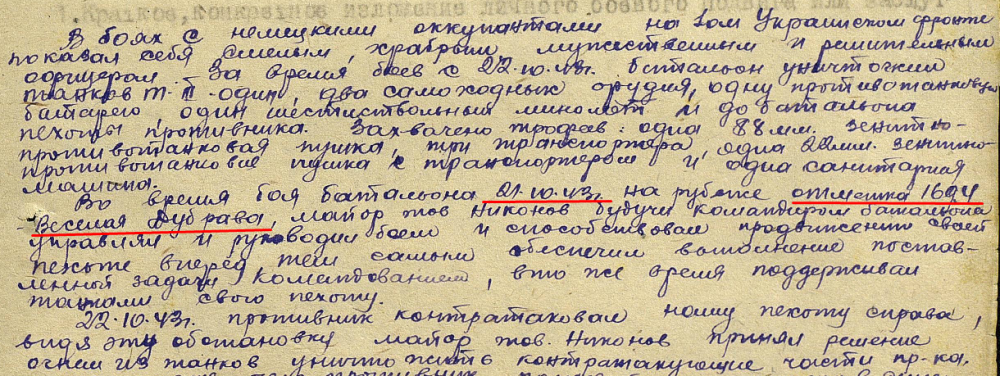 1. Краткое, конкретное изложение личного боевого подвига или заслуг
В боях с немецкими оккупантами на 2ом Украинском фронте
показал себя смелым, храбрым, мужественным и решительным
офицером. За время боев с 22.10.43г. батальон уничтожил
танков Т-II-один, два самоходных орудия, одну противотанковую
батарею, один шестиствольный миномет и до батальона
пехоты противника. Захвачено трофев: одна 88мм. зенитно-
противотанковая пушка, три транспортера, одна 22мм. зенитно-
противотанковая пушка с транспортером и одна санитарная
машина.
Во время боя батальона 21.10.43г. на рубеже отметка 169,4
- Веселая Дубрава, майор тов Никонов будучи командиром батальона
управлял и руководил боем и способствовал продвижению своей
пехоте вперёд тем самым обеспечил выполнение постав-
ленной задачи командованием, вто же время поддерживал
танками свого пехоту.
22.10.43г. противник контратаковал нашу пехоту справа,
видя эту обстановку майор тов. Никонов принял решение
огнем из танков уничтожить контратакующие части пр-ка.